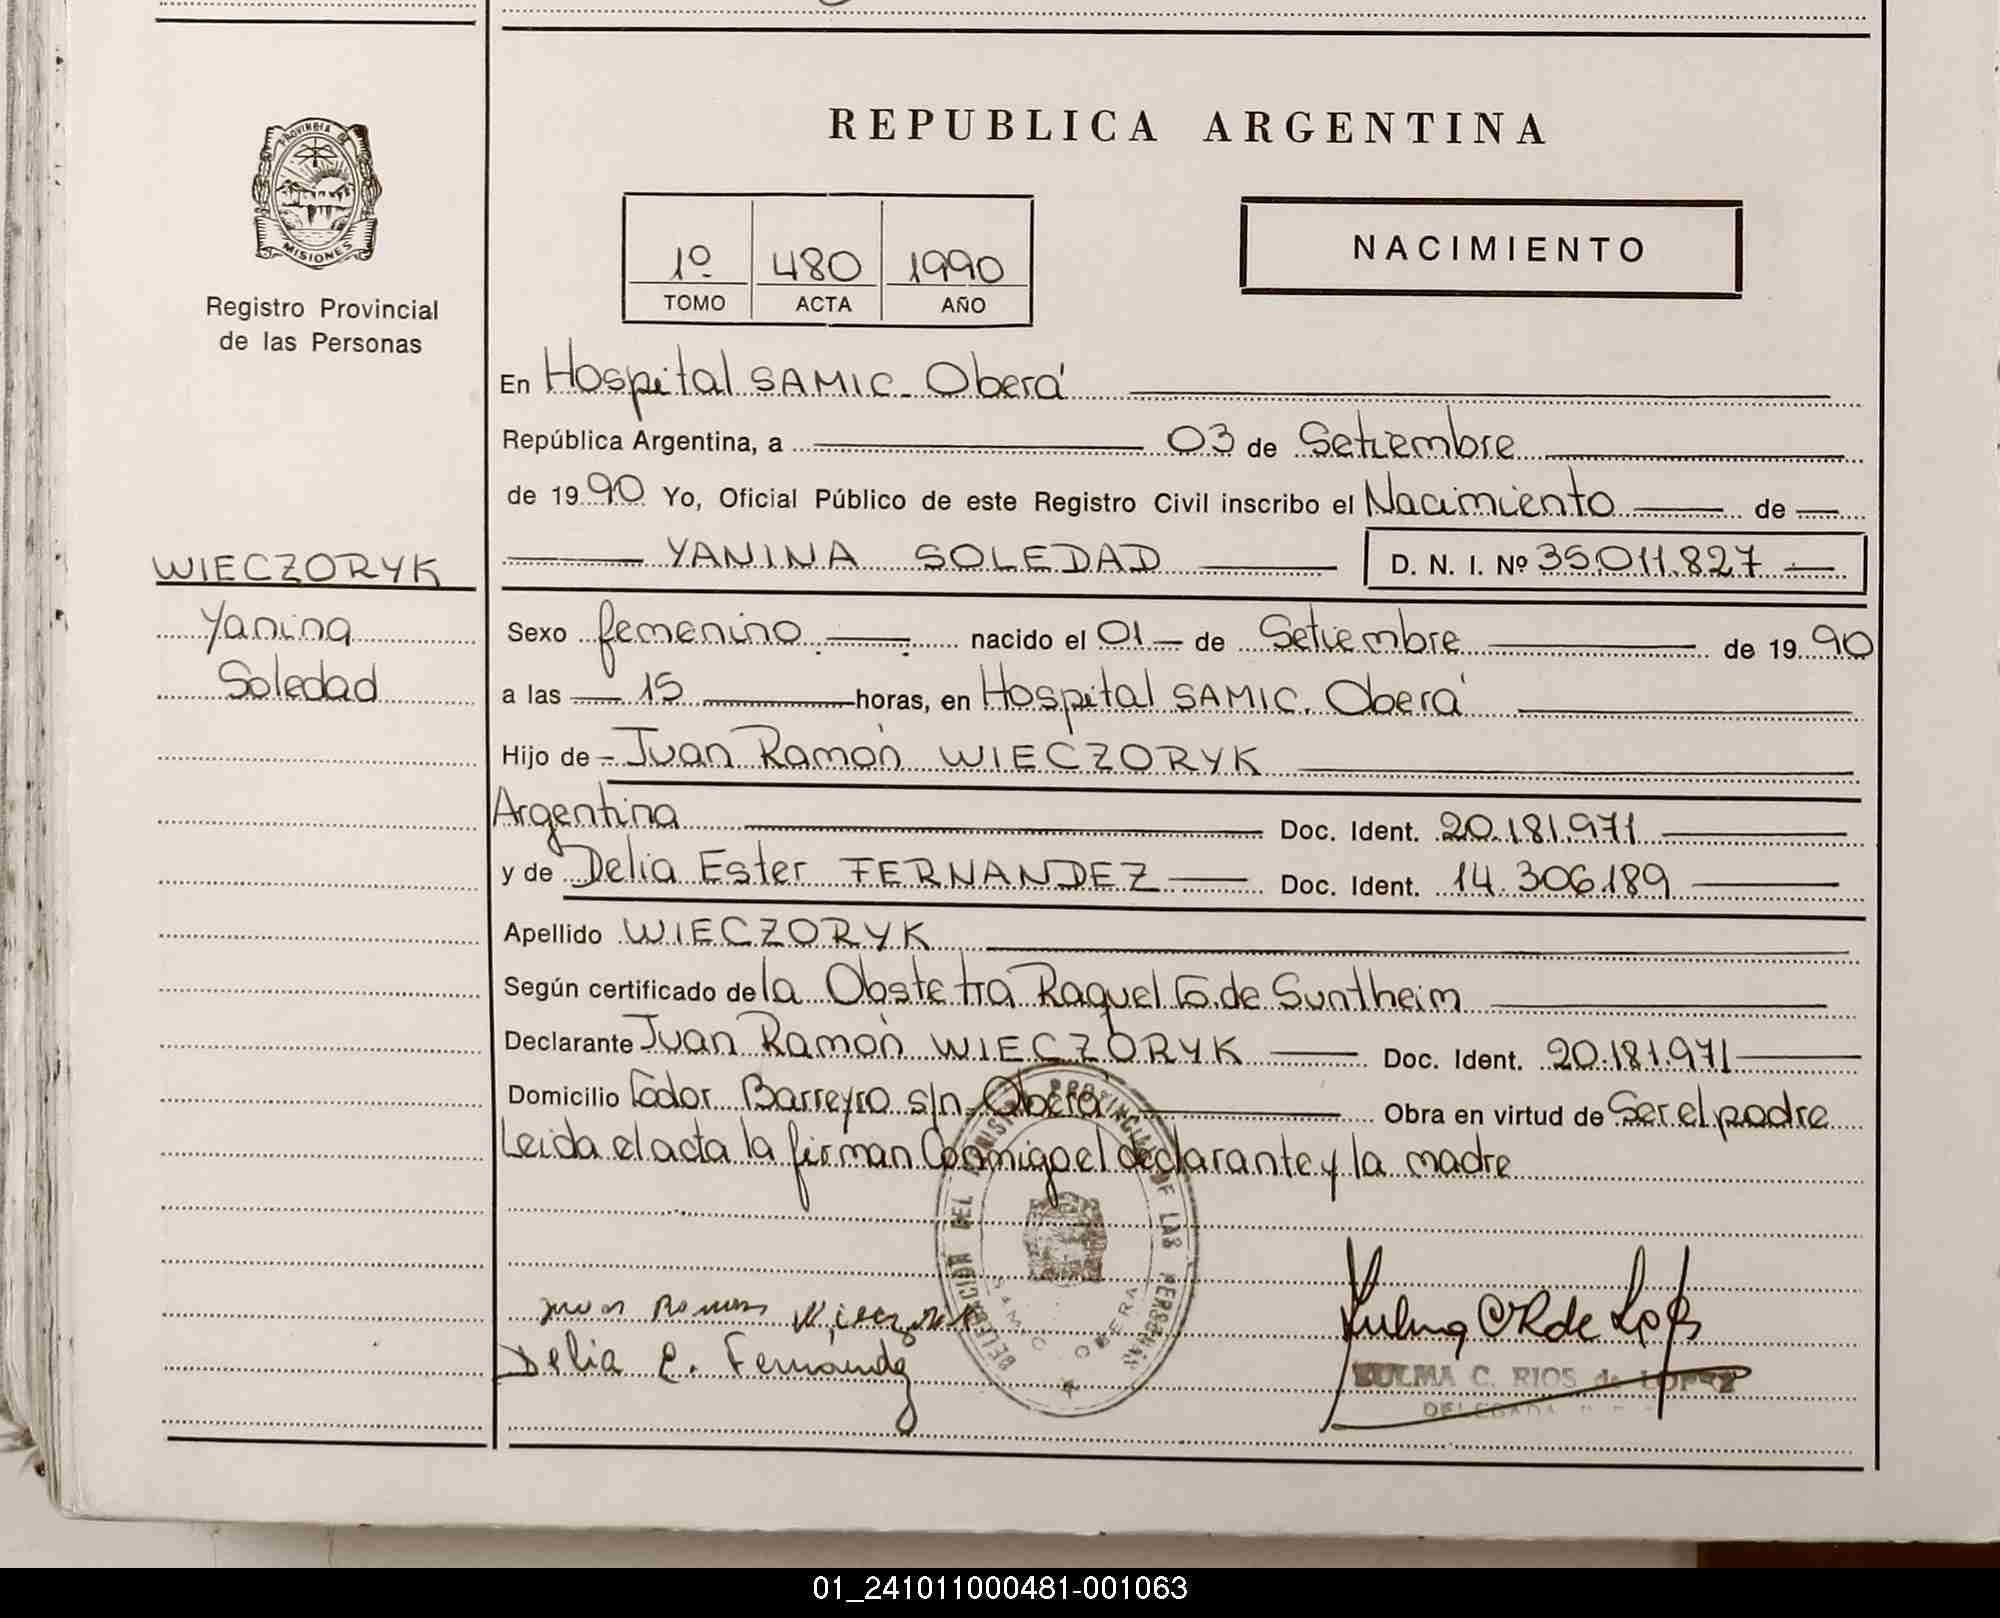 PROVINCIA DE
MISIONES
Registro Provincial
de las Personas
WIECZORYK
Yanina
Soledad
REPUBLICA ARGENTINA
1º 480 1990
TOMO ACTA AÑO
NACIMIENTO
En Hospital SAMIC. Oberá
República Argentina, a 03 de Setiembre
de 1990 Yo, Oficial Público de este Registro Civil inscribo el Nacimiento de
YANINA SOLEDAD D. N. I. Nº 35.011.827
Sexo femenino nacido el 01 de Setiembre de 1990
a las 15 horas, en Hospital SAMIC. Oberá
Hijo de Juan Ramón WIECZORYK
Argentina Doc. Ident. 20.181.971
y de Delia Ester FERNANDEZ Doc. Ident. 14.306.189
Apellido WIECZORYK
Según certificado de la Obstetra Raquel G. de Suntheim
Declarante Juan Ramón WIECZORYK Doc. Ident. 20.181.971
Domicilio Barreyro s/n. Oberá Obra en virtud de Ser el padre
Leida el acta la firman Conmigo el declarante y la madre
DELEGACION DEL PROVINCIAL DE LAS PERSONAS
SAMIC OBERA
Juan Ramon Wieczoryk
Delia E. Fernández
ZULMA C. RIOS de LOPEZ
DELEGADA
01_241011000481-001063